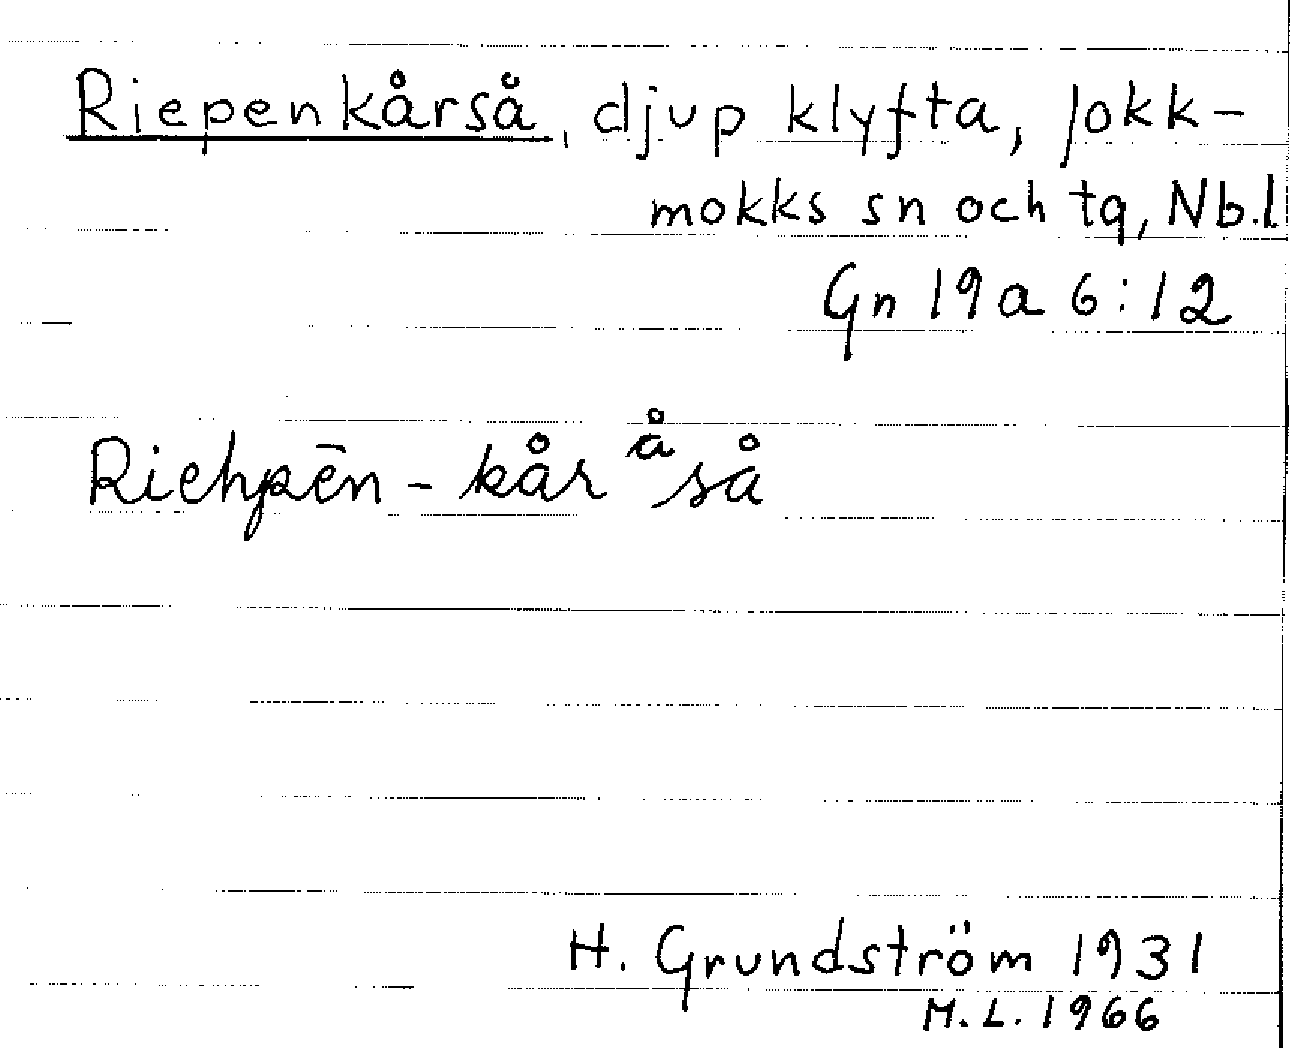 Riepenkårså, djup klyfta, Jokk-
mokks sn och tg, Nb.l
Gn 19a 6:12
Riehpēn-kåråså
H. Grundström 1931
M.L. 1966